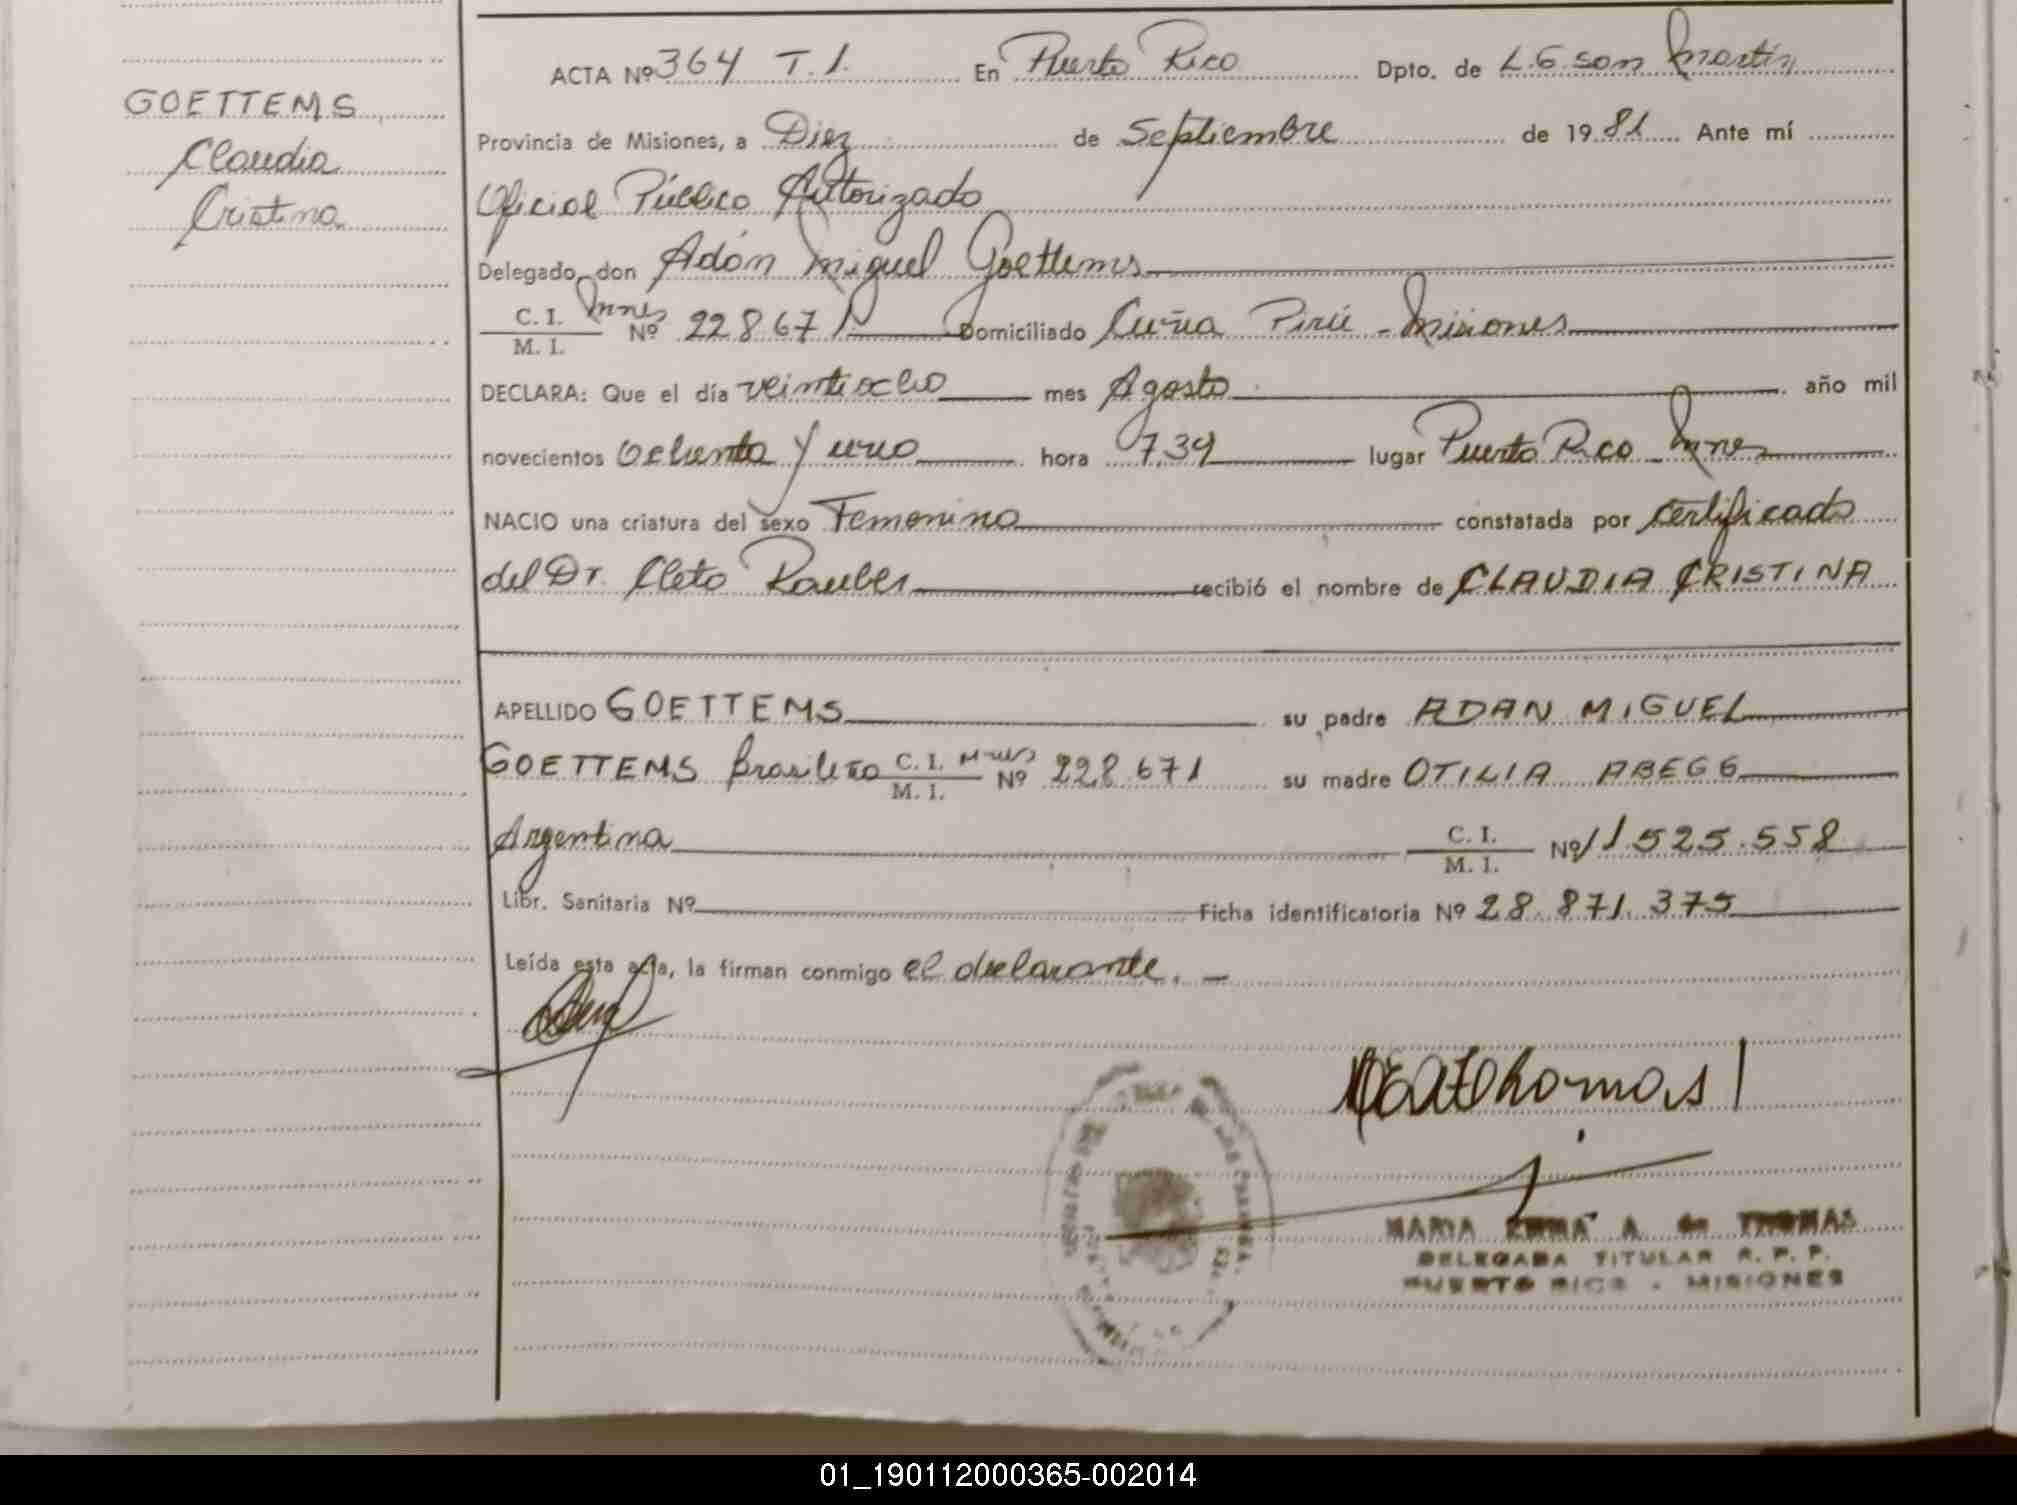 ACTA Nº 364 T.I. En Puerto Rico Dpto. de L.G. San Martín
GOETTEMS
Claudia
Cristina
Provincia de Misiones, a Diez de Septiembre de 1981 Ante mí
Oficial Público Autorizado
Delegado don Adán Miguel Goettems
C. I. Mnes
M. I. Nº 228671 Domiciliado Cuña Pirú - Misiones
DECLARA: Que el día veintiocho mes Agosto año mil
novecientos ochenta y uno hora 7,39 lugar Puerto Rico - Mnes
NACIO una criatura del sexo Femenino constatada por certificado
del Dr. Cleto Rauber recibió el nombre de CLAUDIA CRISTINA
APELLIDO GOETTEMS su padre ADAN MIGUEL
GOETTEMS Brasileño C. I. Mnes Nº 228.671 su madre OTILIA ABEGG
M. I.
Argentina C. I. Nº 11.525.558
M. I.
Libr. Sanitaria Nº Ficha identificatoria Nº 28.871.375
Leída esta acta, la firman conmigo el declarante. -
MARIA EMMA A. de THOMAS
DELEGADA TITULAR R. P. P.
PUERTO RICO - MISIONES
01_190112000365-002014